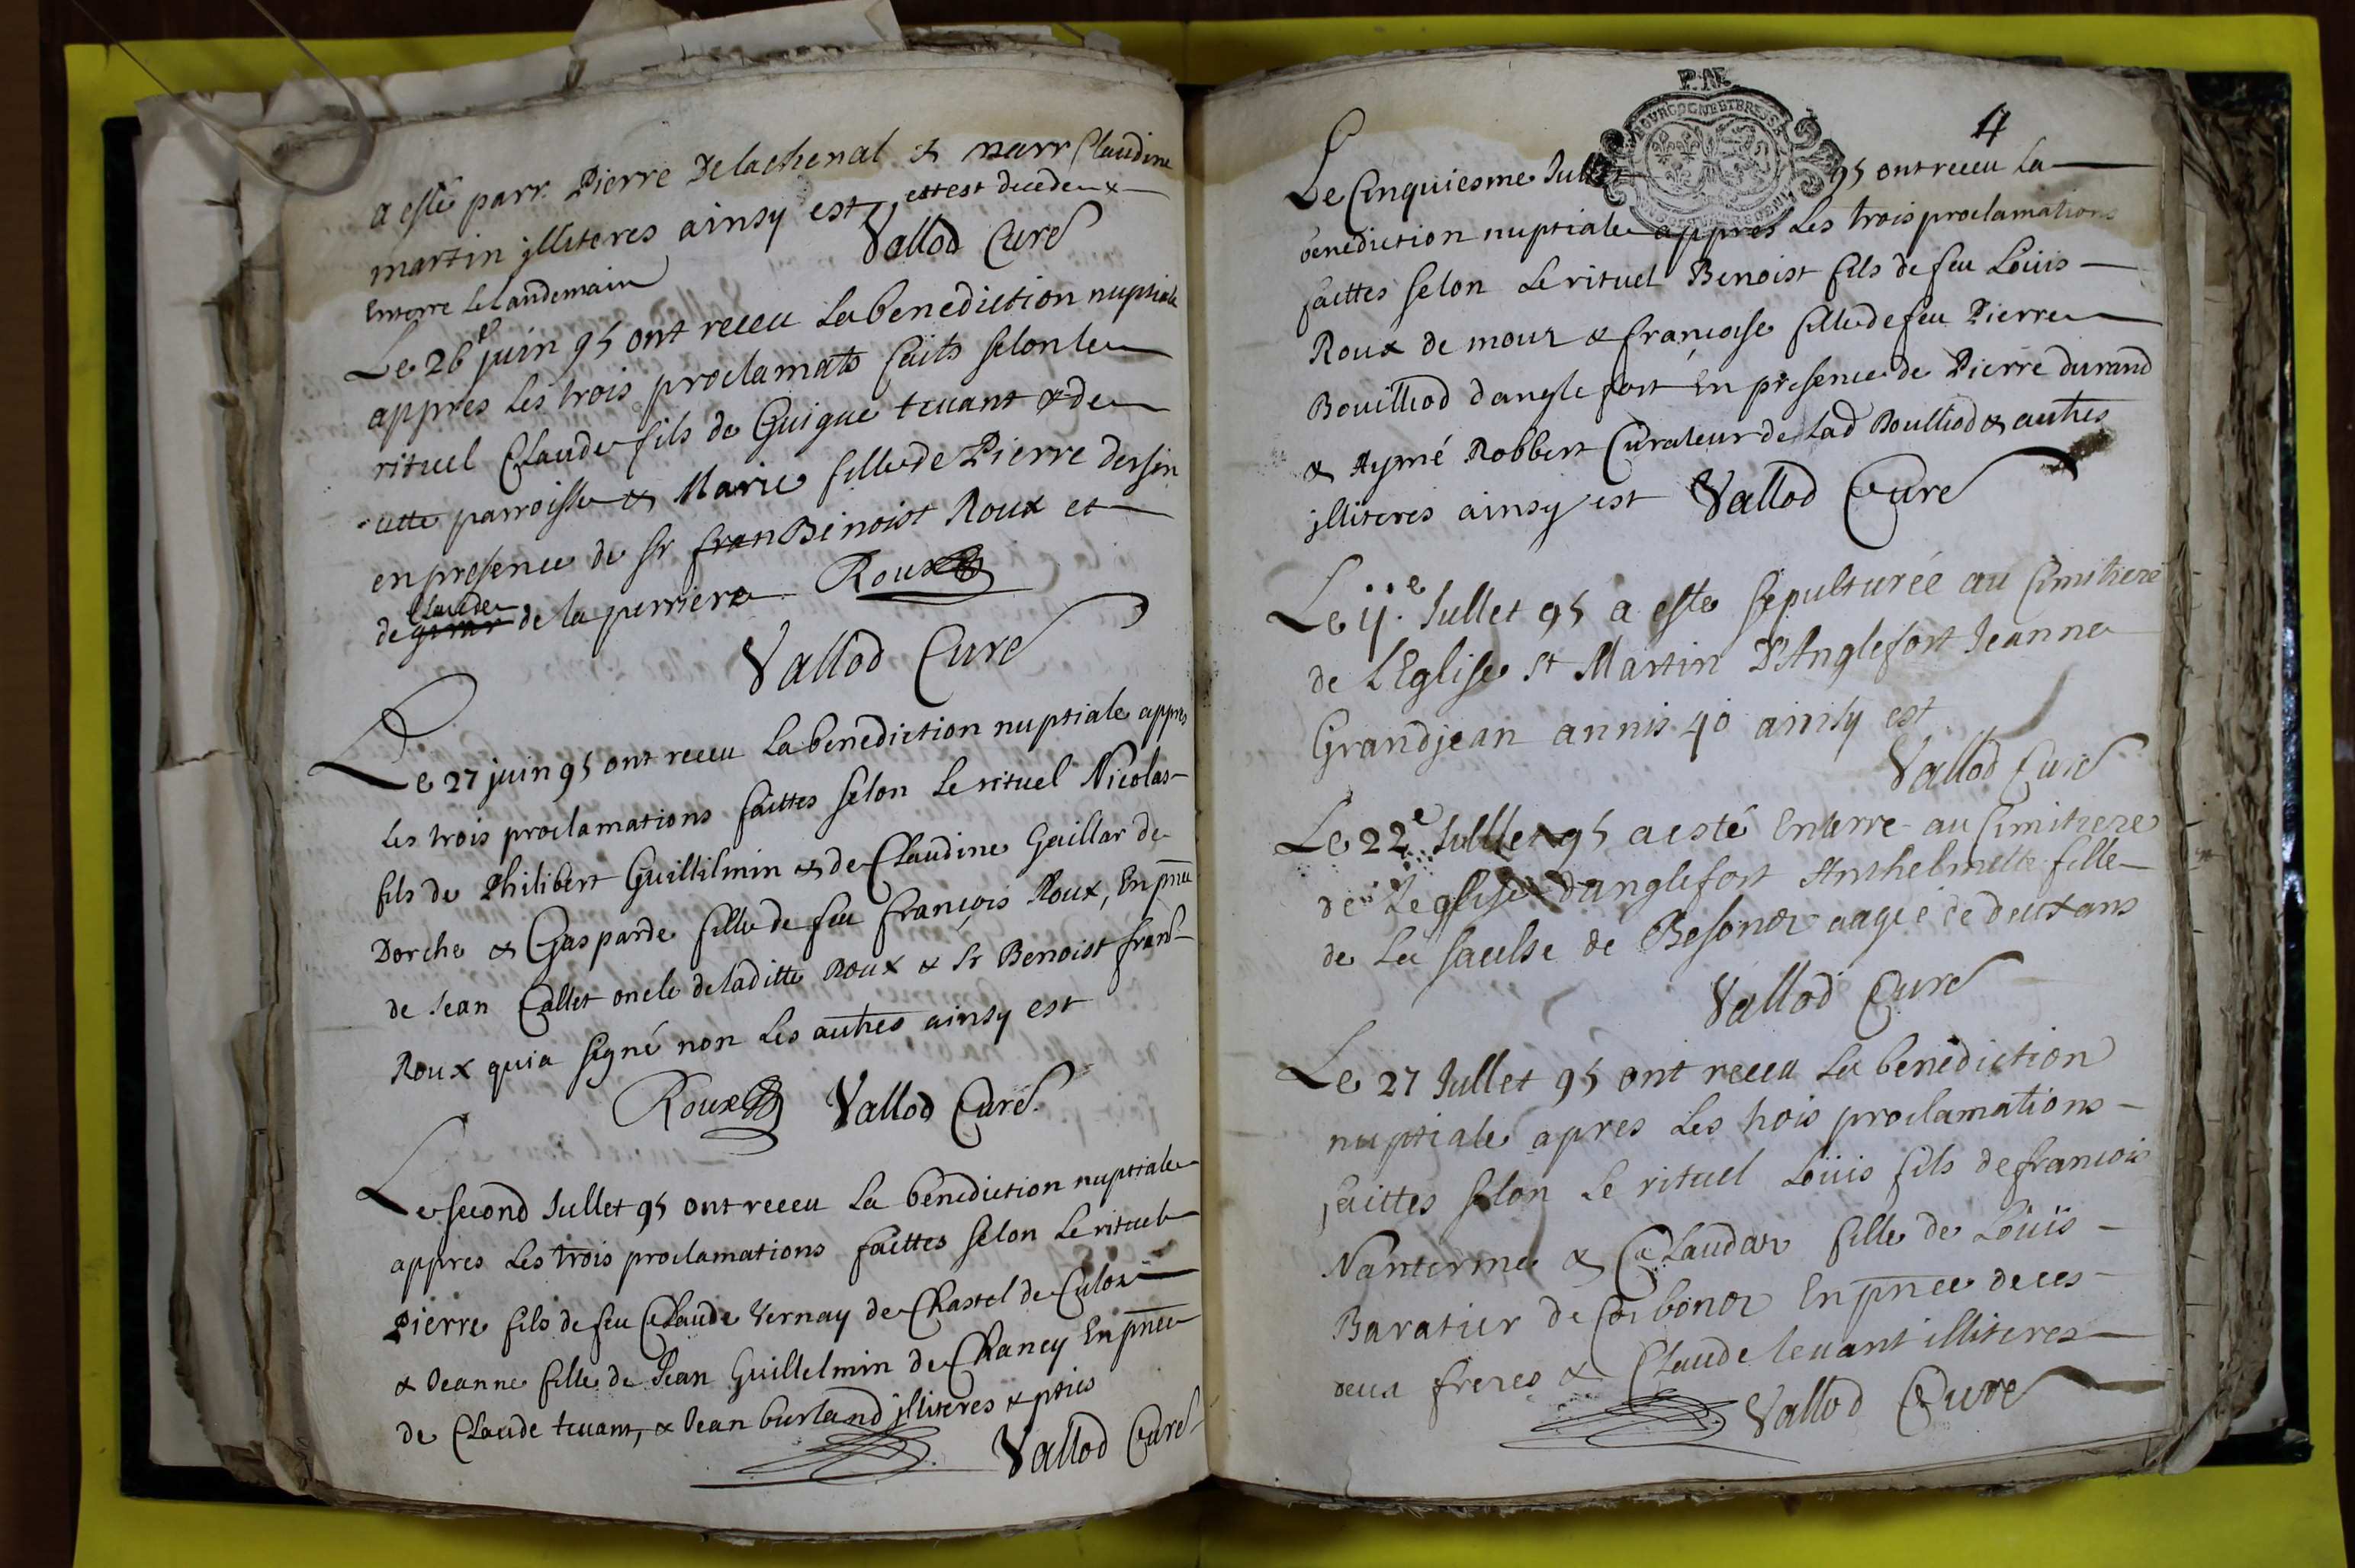 a esté parr. Pierre Delachenal & marr Claudine
martin jlliteres ainsy est et est decede &
Vallod Curé
Enterre le landemain
Le 26e juin 95 ont receu la benediction nuptiale
appres les trois proclamats faits selon le
rituel Claude fils de Guigue tevant & de
cette parroisse & Marie fille de Pierre dersin
en presence de sr fran Benoist Roux et
de Claude de la perriere Roux
Vallod Curé
Le 27 juin 95 ont receu la benediction nuptiale appres
les trois proclamations faittes selon le rituel Nicolas
fils de Philibert Guillilmin & de Claudine Gaillar de
Dorche & Gasparde fille de feu françois Roux, En pnce
de Jean Callet oncle de laditte Roux & Sr Benoist frans
Roux qui a signé non les autres ainsy est
Roux Vallod Curé
Le second Jullet 95 ont receu la benediction nuptiale
appres les trois proclamations faittes selon le rituel
Pierre fils de feu Claude Vernay de Chastel de Culoz
& Jeanne fille de Jean Guillelmin de Chaney En pnce
de Claude tevant, & Jean burland jlliteres & pties
Vallod Curé
4
Le Cinquiesme Jullet 95 ont receu la
benediction nuptiale appres les trois proclamations
faittes selon le rituel Benoist fils de feu Loüis
Roux de mour & françoise fille de feu Pierre
Bouilliod d'anglefort En presence de Pierre durand
& Aymé Robbert Curateur de lad Boulliod & autres
jlliteres ainsy est Vallod Curé
Le ij.e Jullet 95 a esté sepulturée au Cimitiere
de L'Eglise St Martin D'Anglefort Jeanne
Grandjean annis 40 ainsy est
Vallod Curé
Le 22e Jullet 95 a esté Enterre au Cimitiere
de L'eglise d'anglefort Anthelmette fille
de La saulse de Besonoz aagée de deux ans
Vallod Curé
Le 27 Jullet 95 ont receu la benediction
nuptiale apres les trois proclamations
faittes selon le rituel Loüis fils de françois
Nanterme & Claudaz fille de Loüis
Baratier de Corbonoz En pnce de ces
deux freres & Claude levant illiteres
Vallod Curé